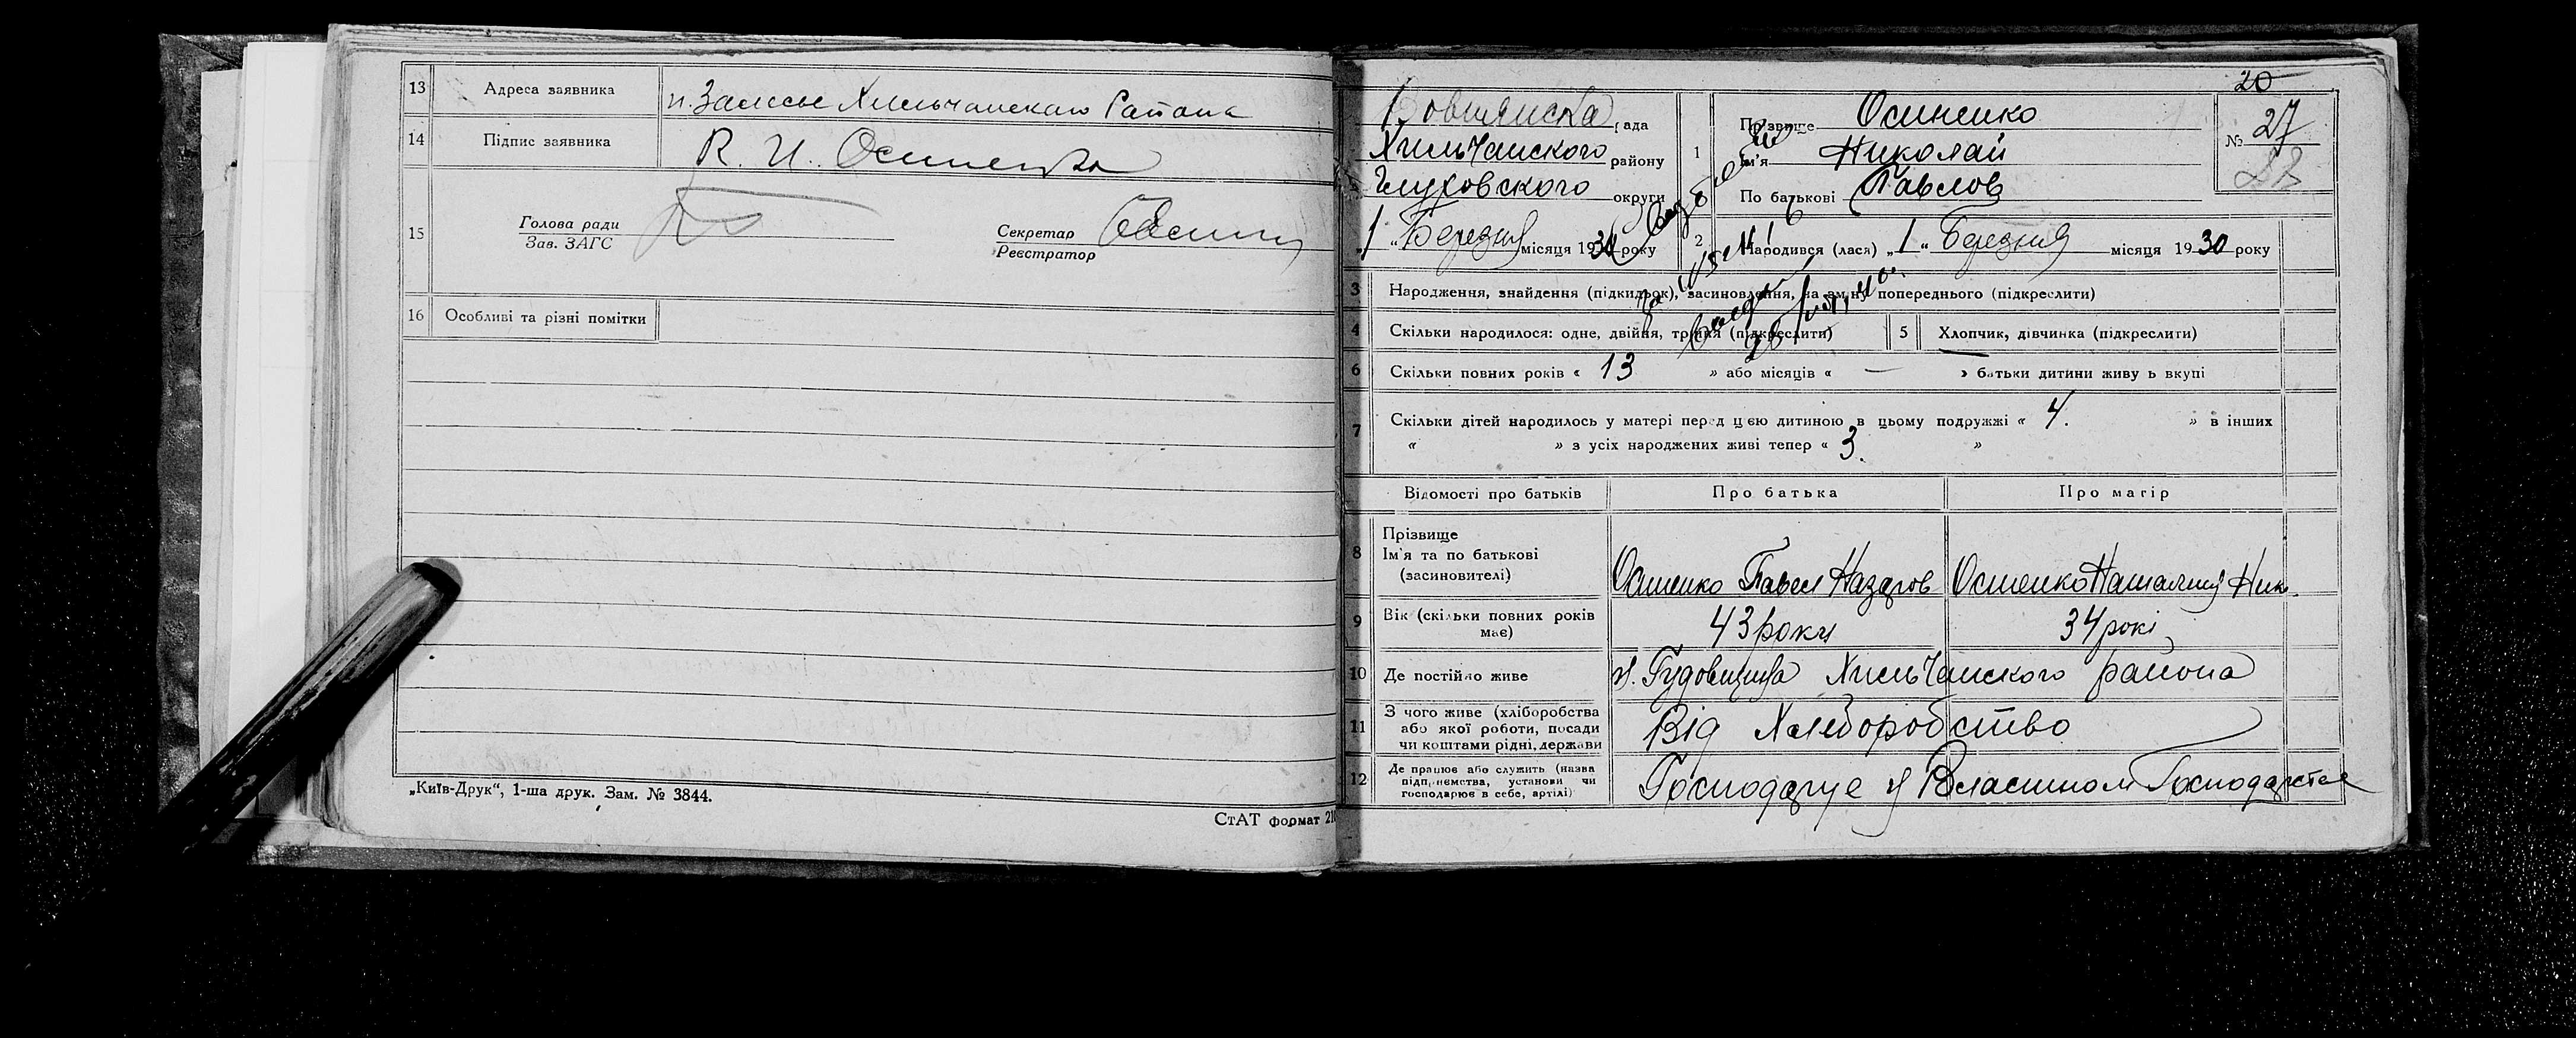 13 Адреса заявника п. Залесье Хильчанскаго Района
14 Підпис заявника Осипенко
15 Голова ради
Зав. ЗАГС
Секретар
Реєстратор
16 Особливі та різні помітки
„Київ-Друк“, 1-ша друк. Зам. № 3844.
СтАТ формат 210
20
рада
Хильчанского району
Глуховского округи
„1“ Березня місяця 1930 року
1 Прізвище Осипенко
Ім'я Николай
По батькові Павлов
№ 27
2 Народився (лася) „1“ Березня місяця 1930 року
3 Народження, знайдення (підкидьок), засиновлення, на зміну попереднього (підкреслити)
4 Скільки народилося: одне, двійня, трійня (підкреслити)
5 Хлопчик, дівчинка (підкреслити)
6 Скільки повних років « 13 » або місяців « — » батьки дитини живуть вкупі
7 Скільки дітей народилось у матері перед цією дитиною в цьому подружжі « 4. » в інших
« » з усіх народжених живі тепер « 3. »
Відомості про батьків Про батька Про матір
8 Прізвище
Ім'я та по батькові
(засиновителі)
Осипенко Павел Назаров Осипенко Наталия Ник.
9 Вік (скільки повних років
має)
43 роки 34 рокі
10 Де постійно живе Хильчанского района
11 З чого живе (хліборобства
або якої роботи, посади
чи коштами рідні, держави
Від Хлеборобство
12 Де працює або служить (назва
підприємства, установи чи
господарює в себе, артілі)
Господарує у Власном Господарстве